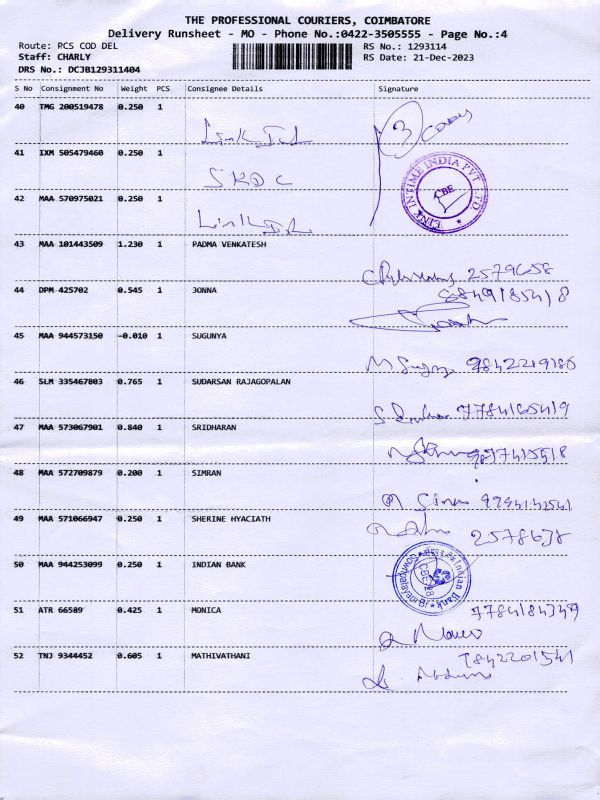 THE PROFESSIONAL COURIERS, COIMBATORE
Delivery Runsheet - MO - Phone No.:0422-3505555 - Page No.:4
Route: PCS COD DEL
RS No.: 1293114
Staff: CHARLY
RS Date: 21-Dec-2023
DRS No.: DCJB129311404
S No Consignment No Weight PCS Consignee Details Signature
40 TMG 200519478 0.250 1
3 Covers
41 IXM 505479460 0.250 1
SKDC
LINK INTIME INDIA PVT LTD
CBE
42 MAA 570975021 0.250 1
43 MAA 101443509 1.230 1 PADMA VENKATESH
2579658
44 DPM 425702 0.545 1 JONNA
8849185418
45 MAA 944573150 -0.010 1 SUGUNYA
9842219186
46 SLM 335467803 0.765 1 SUDARSAN RAJAGOPALAN
7784165419
47 MAA 573067901 0.840 1 SRIDHARAN
48 MAA 572709879 0.200 1 SIMRAN
49 MAA 571066947 0.250 1 SHERINE HYACIATH
50 MAA 944253099 0.250 1 INDIAN BANK
Indian Bank
51 ATR 66589 0.425 1 MONICA
7784184349
52 TNJ 9344452 0.605 1 MATHIVATHANI
7842201541